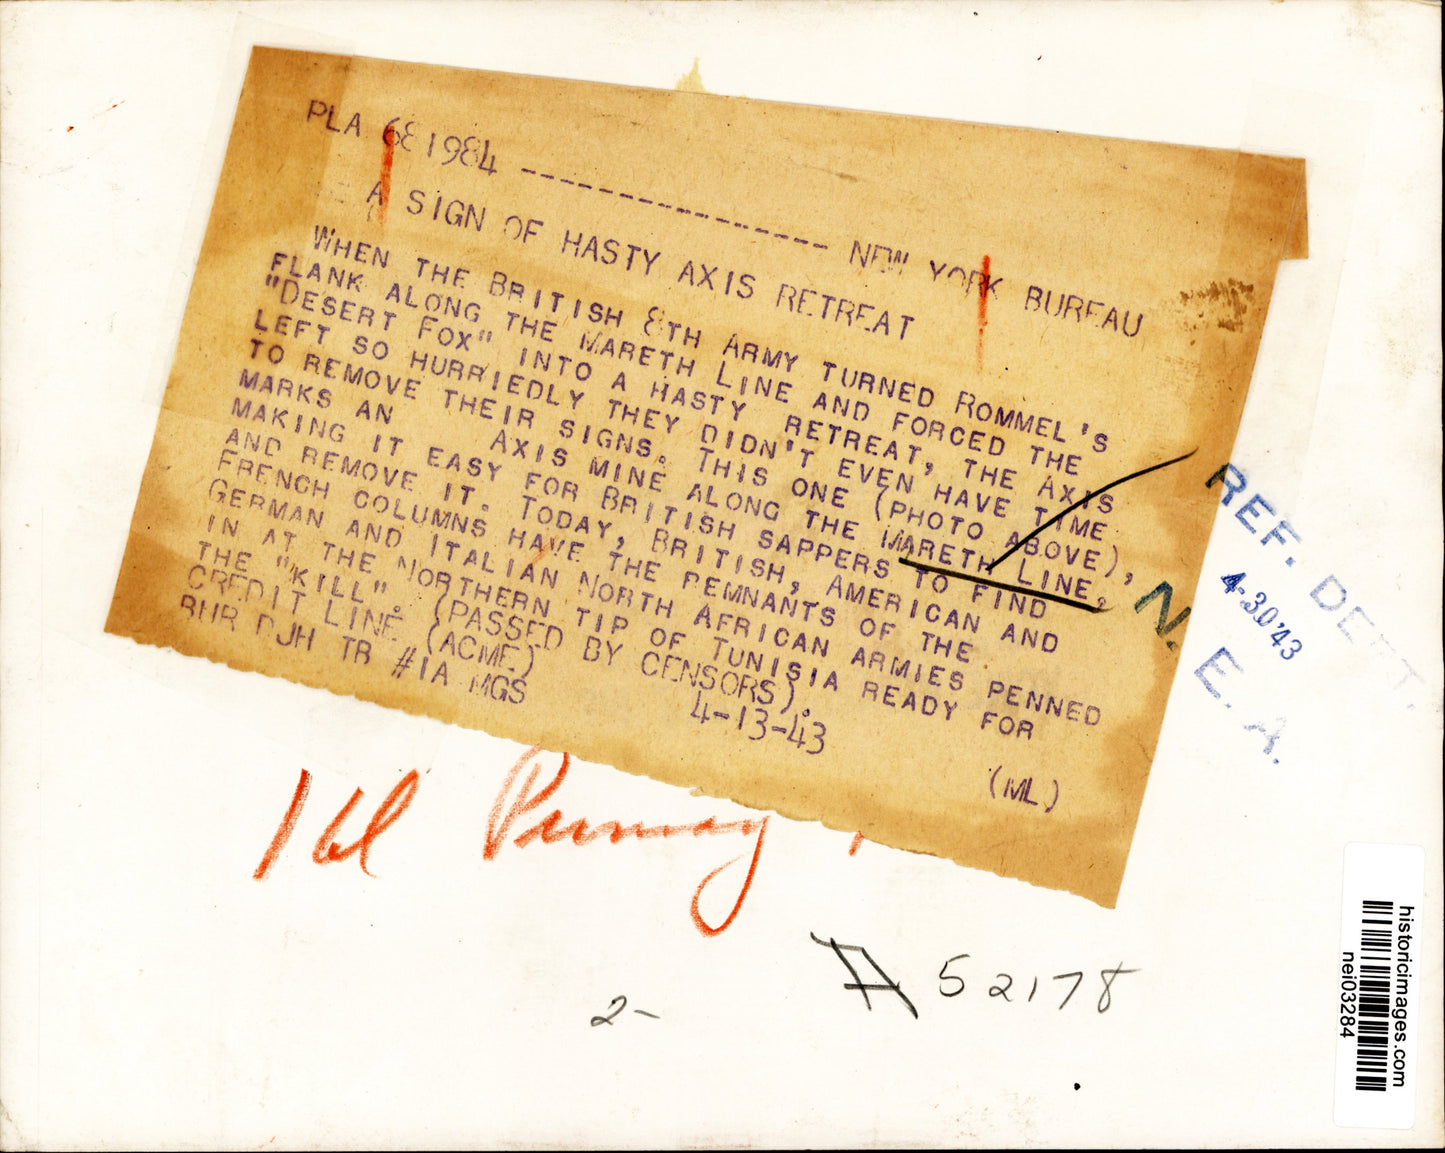 PLA 681984 ----------------- NEW YORK BUREAU
A SIGN OF HASTY AXIS RETREAT
WHEN THE BRITISH 8TH ARMY TURNED ROMMEL'S
FLANK ALONG THE MARETH LINE AND FORCED THE
"DESERT FOX" INTO A HASTY RETREAT, THE AXIS
LEFT SO HURRIEDLY THEY DIDN'T EVEN HAVE TIME
TO REMOVE THEIR SIGNS. THIS ONE (PHOTO ABOVE),
MARKS AN AXIS MINE ALONG THE MARETH LINE,
MAKING IT EASY FOR BRITISH SAPPERS TO FIND
AND REMOVE IT. TODAY, BRITISH, AMERICAN AND
FRENCH COLUMNS HAVE THE REMNANTS OF THE
GERMAN AND ITALIAN NORTH AFRICAN ARMIES PENNED
IN AT THE NORTHERN TIP OF TUNISIA READY FOR
THE "KILL". (PASSED BY CENSORS).
CREDIT LINE (ACME) 4-13-43
BUR DJH TR #1A MGS (ML)
REF. DEPT.
4-30'43
N. E. A.
A 52178
2-
historicimages.com
nei03284